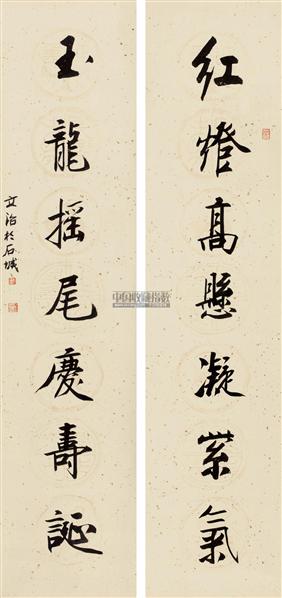 红燈髙懸凝紫氣
玉龍摇尾慶壽誕
文治於石城
中国收藏指数